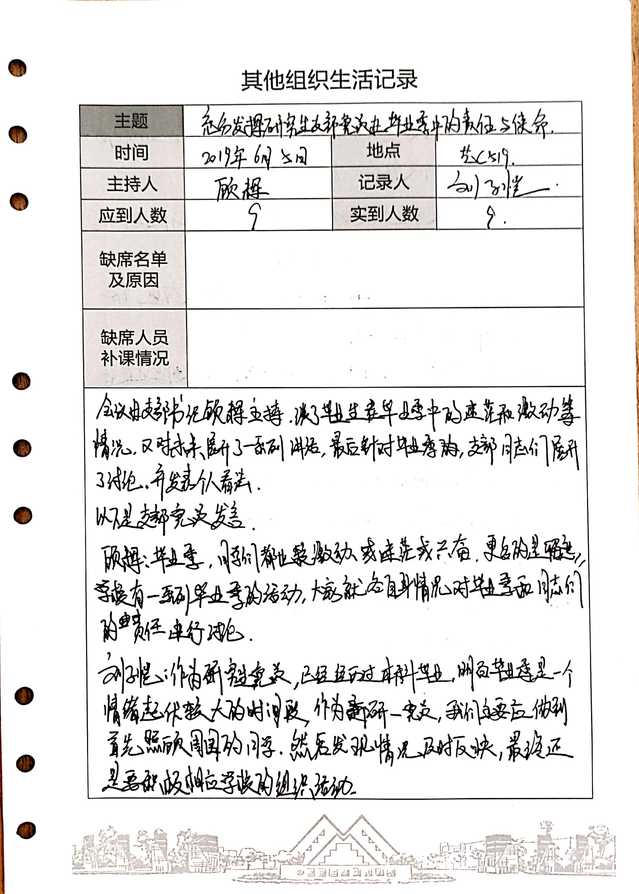 其他组织生活记录
主题 充分发挥研究生支部党员在毕业季中的责任与使命
时间 2019年6月5日 地点 艺C519.
主持人 顾辉 记录人 刘子恺
应到人数 9 实到人数 9.
缺席名单
及原因
缺席人员
补课情况
会议由支部书记顾辉主持,谈了毕业生在毕业季中的迷茫和激动等
情况,又对未来展开了一系列讲话,最后针对毕业季,支部同志们展开
了讨论,并发表个人看法.
以下是支部党员发言.
顾辉:毕业季,同学们都比较激动,或迷茫或兴奋.更多的是
学校有一系列毕业季的活动,大家就各自身情况对毕业季和同志们
的责任进行讨论.
刘子恺:作为研究生党员,已经经历过本科毕业,明白毕业季是一个
情绪起伏较大的时间段,作为研一党员,我们主要应做到
首先照顾周围的同学.然后发现情况及时反映,最终还
是要积极相应学校的组织活动.